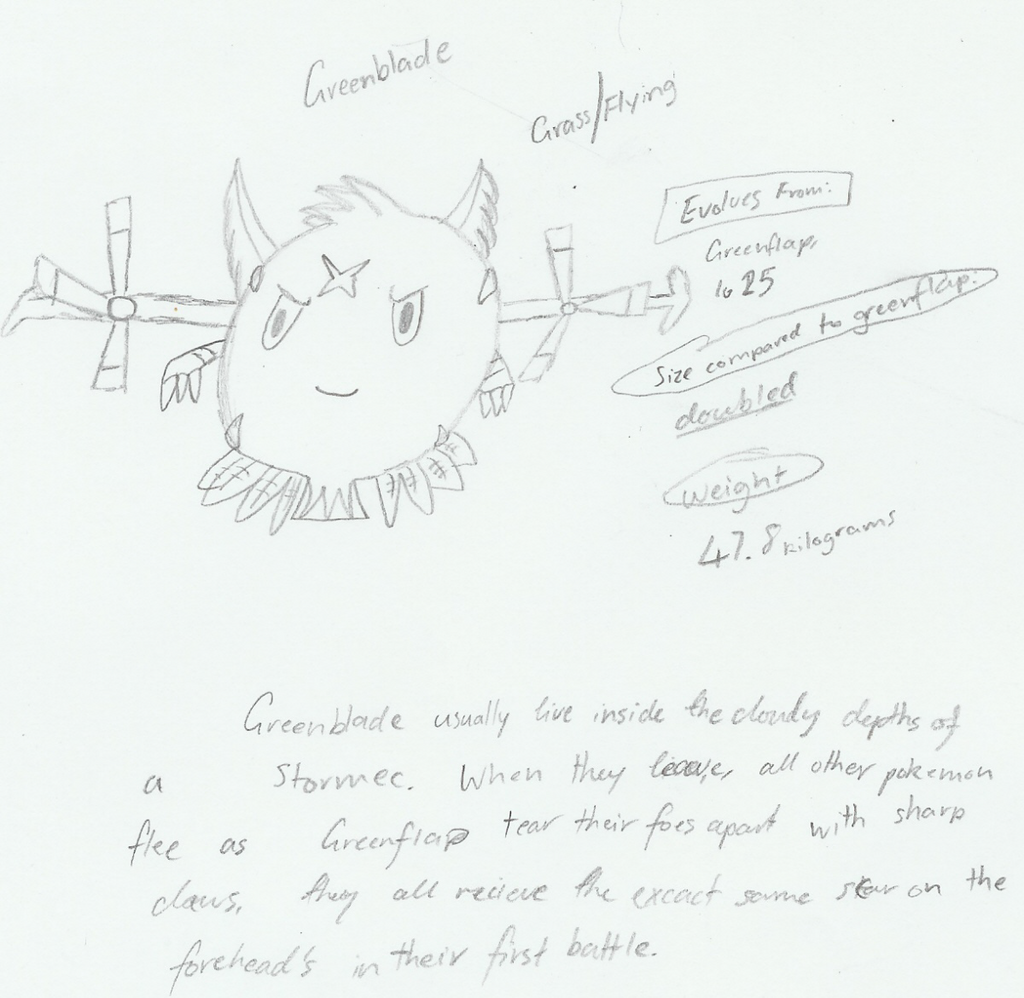 Greenblade
Grass/Flying
Evolves From:
Greenflap,
lv 25
Size compared to greenflap:
doubled
Weight
47.8 kilograms
Greenblade usually live inside the cloudy depths of
a Stormec. When they leave, all other pokemon
flee as Greenflap tear their foes apart with sharp
claws, they all recieve the excact same on the
forehead's in their first battle.